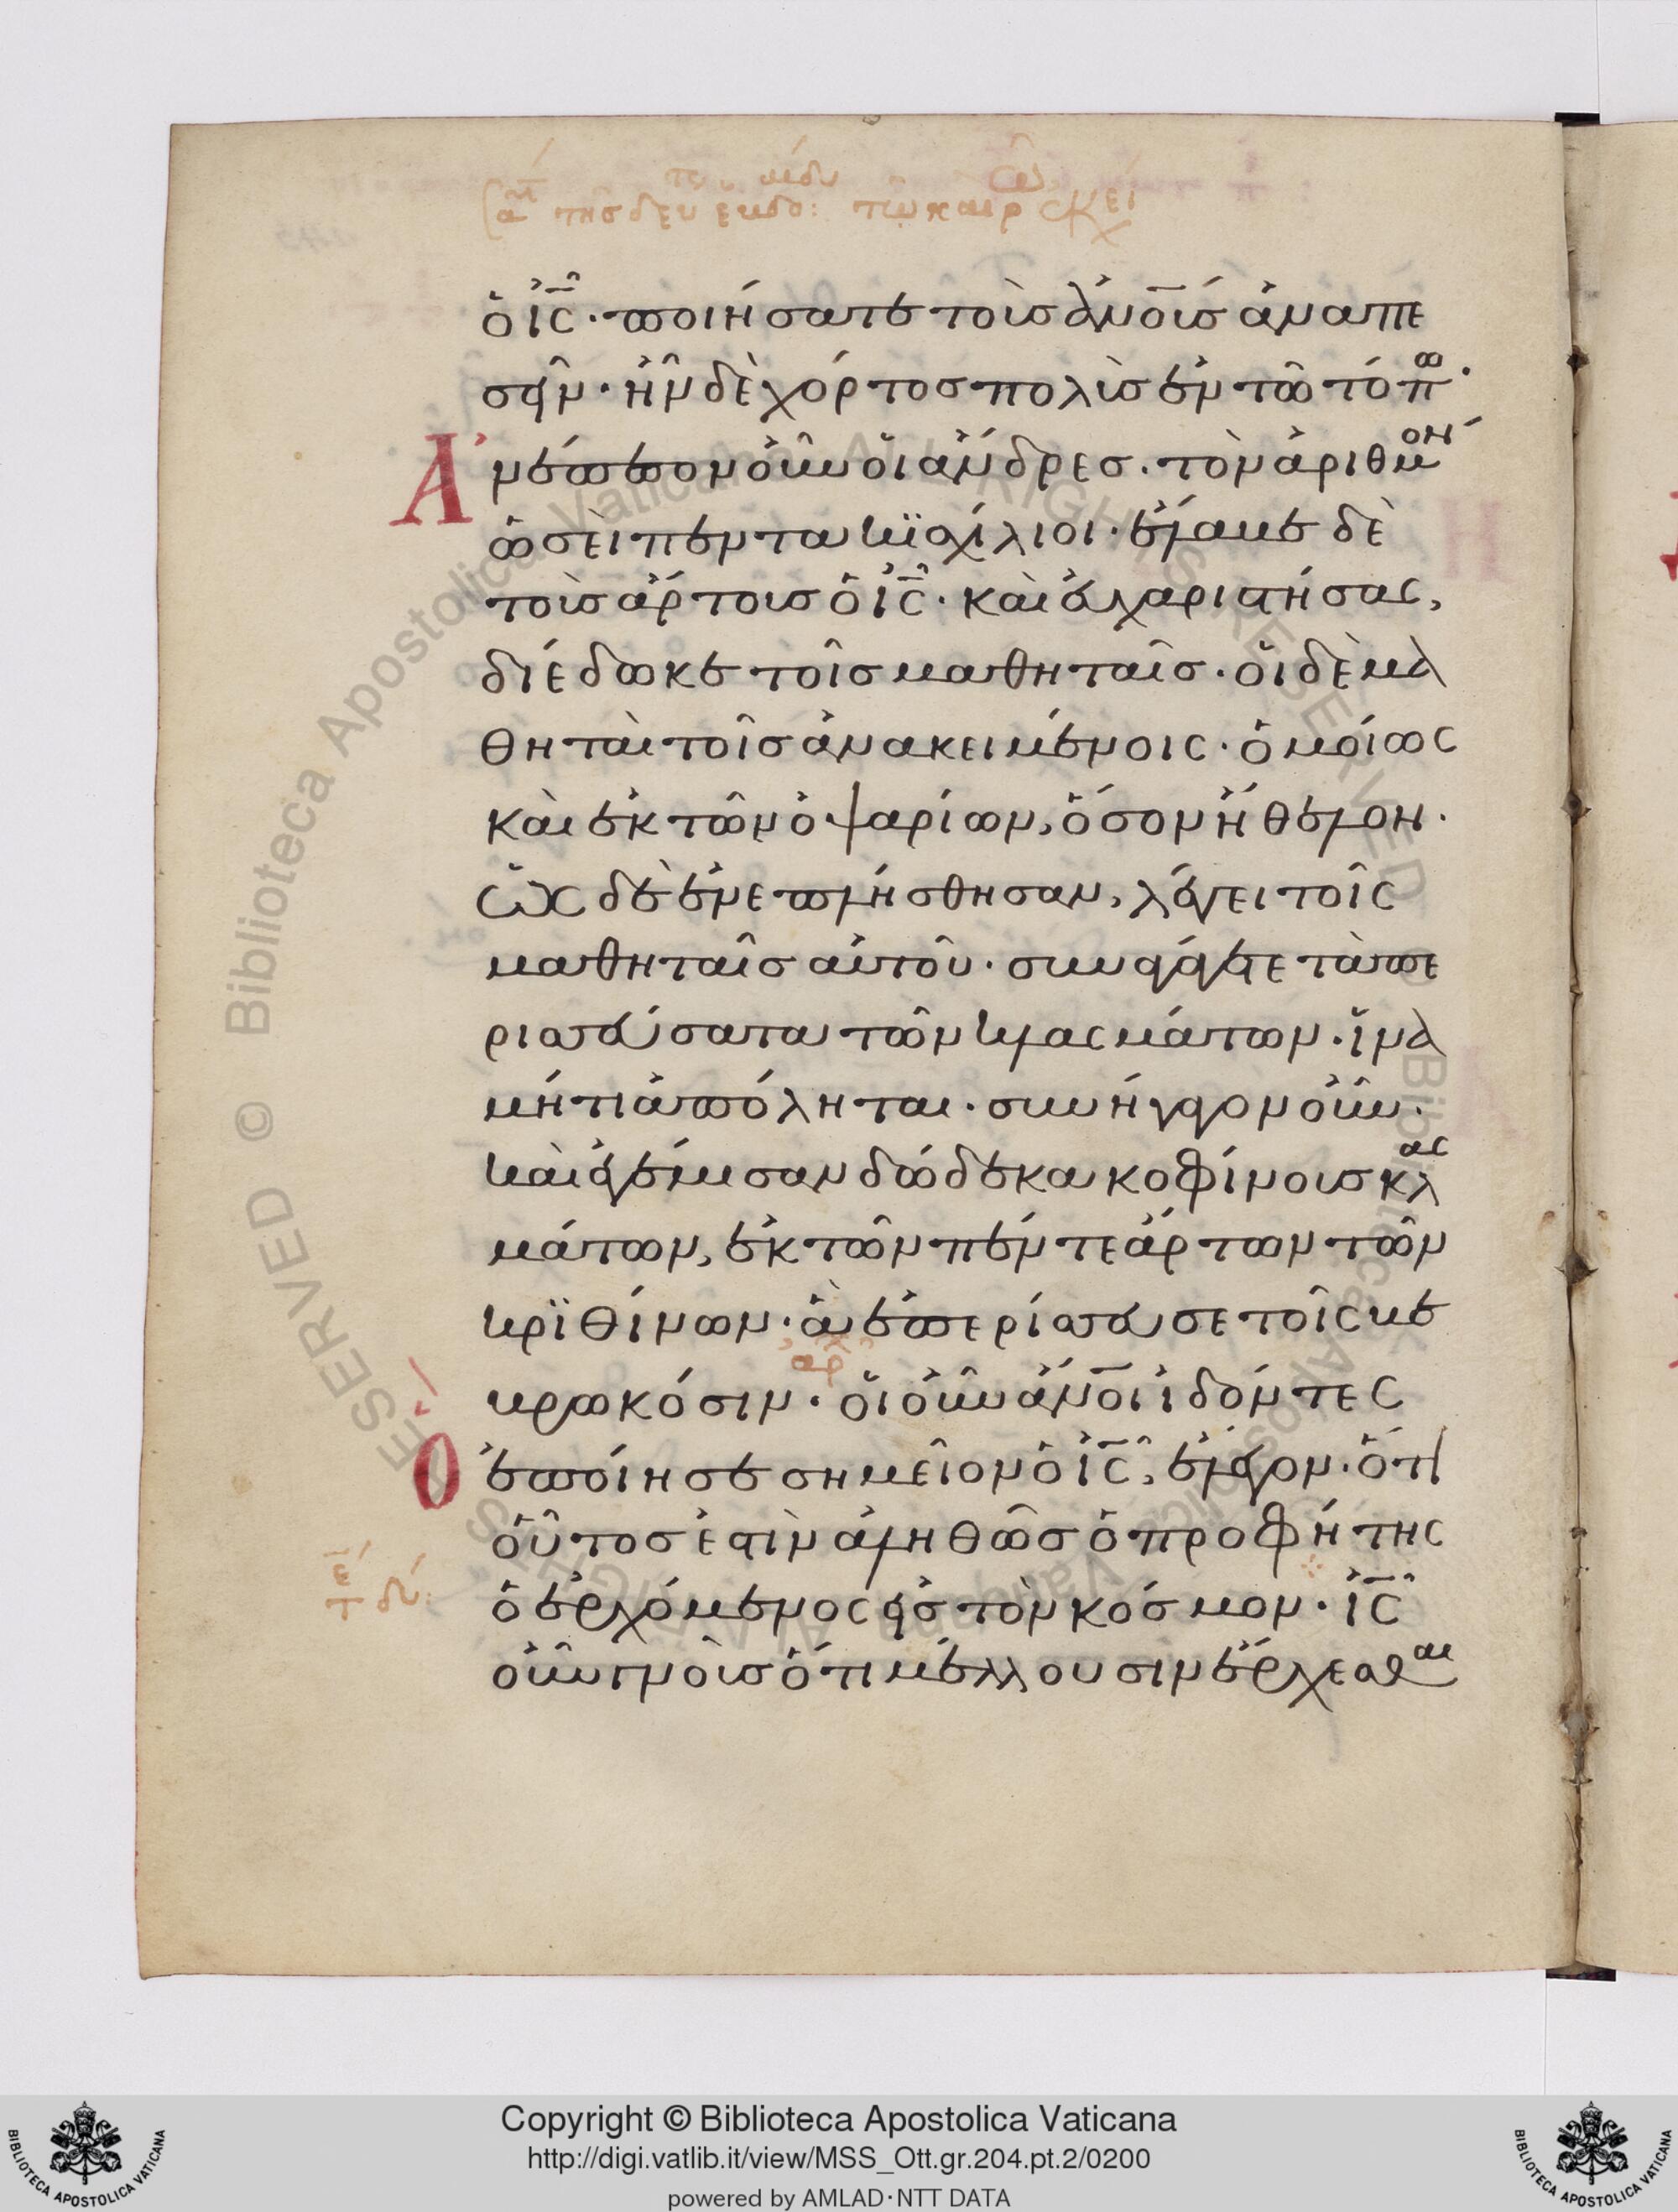 ὁ ἰς̅· ποιήσατε τοὺς ἀνο̅υς ἀναπε
σεῖν· ἦν δὲ χόρτος πολὺς ἐν τῶ τόπω·
Ἀνέπεσον οὖν οἱ ἄνδρες. τὸν ἀριθμὸν
ὡσεὶ πεντακϊσχίλιοι· ἔλαβε δὲ
τοὺς ἄρτους ὁ ἰς̅· καὶ εὐχαριστήσας,
διέδωκε τοῖς μαθηταῖς· οἱ δὲ μα
θηταὶ τοῖς ἀνακειμένοις· ὁμοίως
καὶ ἐκ τῶν ὀψαρίων, ὅσον ἤθελον·
ὡς δὲ ἐνεπλήσθησαν, λέγει τοῖς
μαθηταῖς αὐτοῦ· συναγάγετε τὰ πε
ρισσεύσαντα τῶν κλασμάτων· ἵνα
μή τι ἀπόληται· συνήγαγον οὖν·
καὶ ἐγέμισαν δώδεκα κοφίνους κλασ
μάτων, ἐκ τῶν πέντε ἄρτων τῶν
κρϊθίνων· ἃ ἐπερίσσευσε τοῖς βε
βρωκόσιν· οἱ οὖν ἄνο̅ι ἰδόντες
Ὃ ἐποίησε σημεῖον ὁ ἰς̅, ἔλεγον· ὅτι
οὗτός ἐστὶν ἀληθῶς ὁ προφήτης
ὁ ἐρχόμενος εἰς τὸν κόσμον· ἰς̅
οὖν γνοὺς ὅτι μέλλουσιν ἔρχεσθαι
Copyright © Biblioteca Apostolica Vaticana
http://digi.vatlib.it/view/MSS_Ott.gr.204.pt.2/0200
powered by AMLAD·NTT DATA
BIBLIOTECA APOSTOLICA VATICANA
BIBLIOTECA APOSTOLICA VATICANA